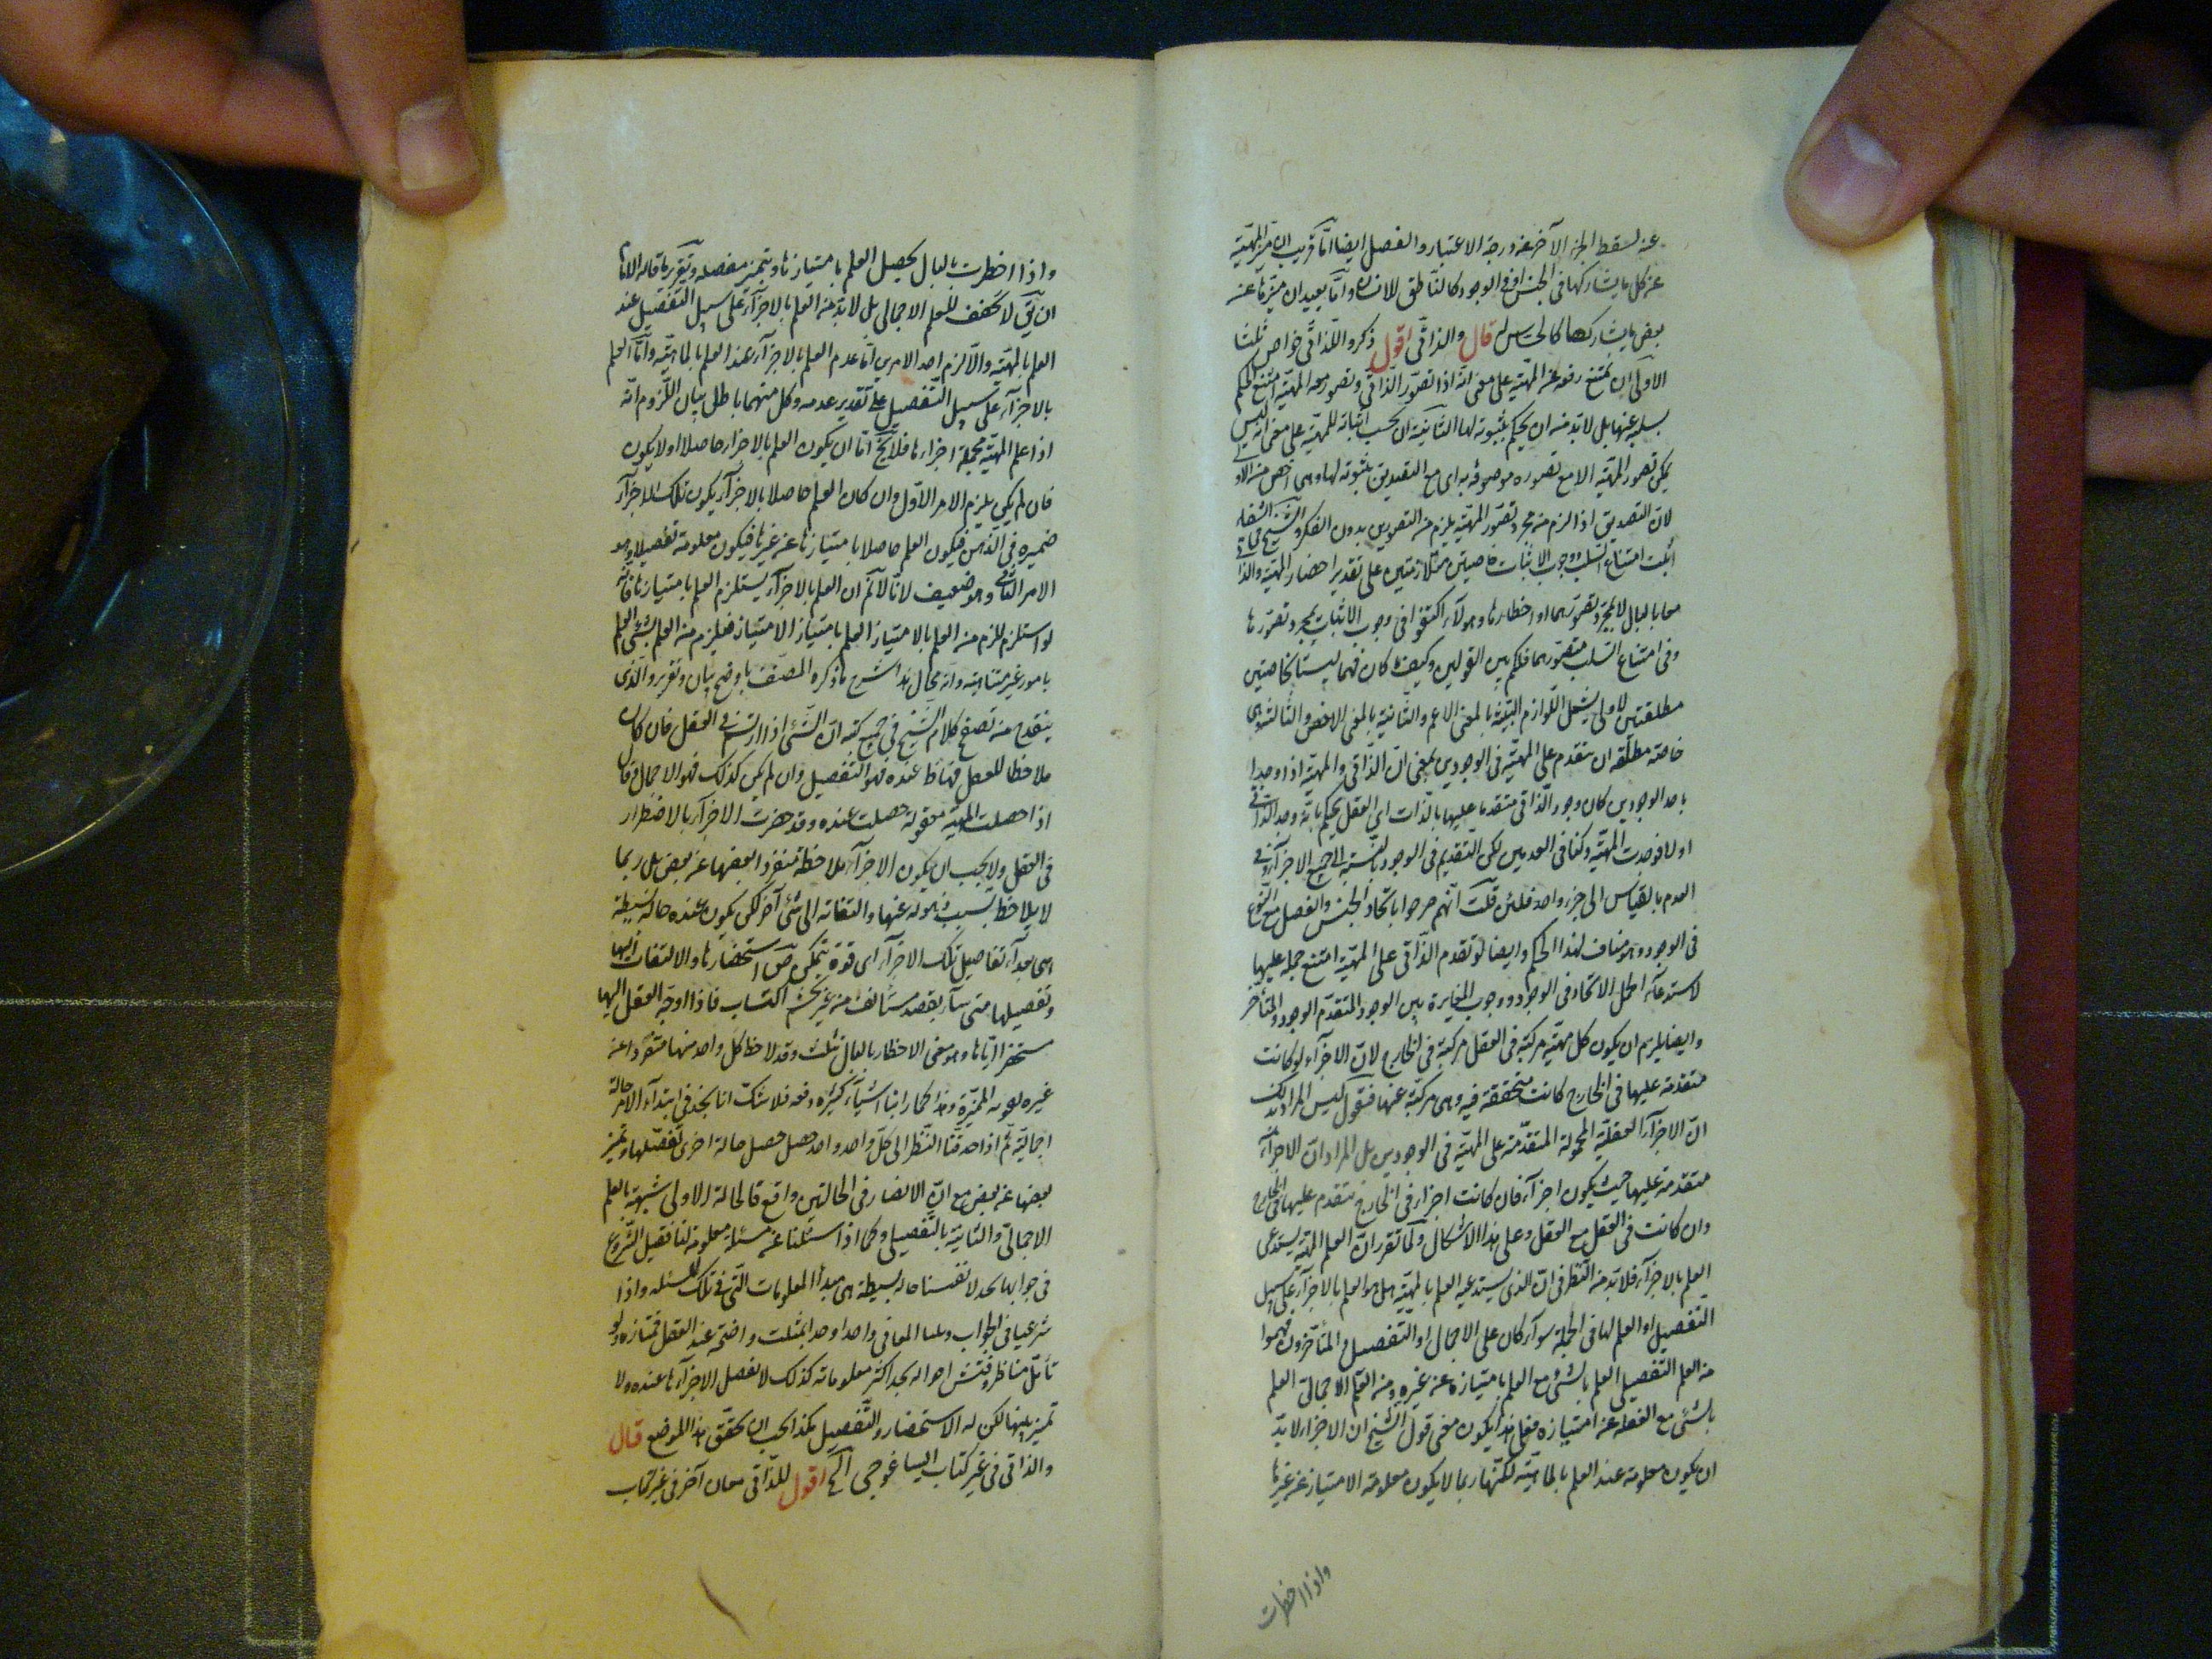 عنه لسقط الجزء الآخر عن درجة الاعتبار والفصل ايضا اما قريب ان ميز المهية
عن كل ما يشاركها فى الجنس او فى الوجود كالناطق للانسان واما بعيد ان ميزها عنه
بعض ما يشاركها كالحساس له قال والذاتى اقول ذكروا للذاتى خواص ثلثا
الاولى ان يمتنع رفعه عن المهية على معنى انه اذا تصور الذاتى وتصور معه المهية امتنع الحكم
بسلبه عنها بل لابد من ان يحكم بثبوته لها الثانية ان يجب اثباته للمهية على معنى انه ليس
يمكن تصور المهية الا مع تصوره موصوفة به اى مع التصديق بثبوته لها وهى اخص من الاولى
لان التصديق اذا لزم من مجرد تصور المهية يلزم من التصورين بدون العكس والشيخ فى الشفاء
اثبت امتناع السلب ووجوب الاثبات خاصيتين متلازمتين على تقدير احضار المهية والذاتى
معا بالبال لا بمجرد تصورهما او اخطارها وهؤلاء اكتفوا فى وجوب الاثبات بمجرد تصورها
وفى امتناع السلب بتصورهما فلكم بين القولين وكيف ما كان فهما ليستا بخاصتين
مطلقتين لاولى يشمل اللوازم البينة بالمعنى الاعم والثانية بالمعنى الاخص والثالثة وهى
خاصة مطلقة ان يتقدم على المهية فى الوجودين بمعنى ان الذاتى والمهية اذا وجدا
باحد الوجودين كان وجود الذاتى متقدما عليها بالذات اى العقل يحكم بانه وجد الذاتى
اولا فوجدت المهية وكذا فى العدمين لكن التقدم فى الوجود بالنسبة الى جميع الاجزاء وفى
العدم بالقياس الى جزء واحد فلئن قلت انهم صرحوا باتحاد الجنس والفصل مع النوع
فى الوجود وهو مناف لهذا الحكم وايضا لو تقدم الذاتى على المهية امتنع حمله عليها
لاستدعاء الحمل الاتحاد فى الوجود ووجوب المغايرة بين الوجود المتقدم الوجود والمتأخر
وايضا يلزم ان يكون كل مهية مركبة فى العقل مركبة فى الخارج لان الاجزاء لو كانت
متقدمة عليها فى الخارج كانت متحققة فيه وهى مركبة عنها فنقول ليس المراد بذلك
ان الاجزاء العقلية المحمولة المتقدمة على المهية فى الوجودين بل المراد ان الاجزاء
متقدمة عليها حيث يكون اجزاء فان كانت اجزاء فى الخارج يتقدم عليها فى الخارج
وان كانت فى العقل مع العقل وعلى هذا الاشكال ولما تقرر ان العلم المهية يستدعى
العلم بالاجزاء فلابد من النظر فى ان الذى يستدعيه العلم بالمهية هل هو العلم بالاجزاء على سبيل
التفصيل او العلم لها فى الجملة سواء كان على الاجمال او التفصيل والمتأخرون فهموا
من العلم التفصيلى العلم بالشئ مع العلم بامتيازه عن غيره ومن العلم الاجمالى العلم
بالشئ مع الغفلة عن امتيازه فعلى هذا يكون معنى قول الشيخ ان الاجزاء لابد
ان يكون معلومة عند العلم بالماهية لكنها ربما لا يكون معلومة الامتياز عن غيرها
واذا اخطرت
واذا اخطرت بالبال يحصل العلم بامتيازها ويتميز مفصلة وتقرير ما قاله الامام
ان يق لا يكفى للعلم الاجمالى بل لابد من العلم بالاجزاء على سبيل التفصيل عند
العلم بالمهية والا لزم احد الامرين اما عدم العلم بالاجزاء عند العلم بالماهية واما العلم
بالاجزاء على سبيل التفصيل على تقدير عدمه وكل منهما باطل بيان اللزوم انه
اذا علم المهية بجملة اجزاءها فلا يخ اما ان يكون العلم بالاجزاء حاصلا او لا يكون
فان لم يكن يلزم الامر الاول وان كان العلم حاصلا بالاجزاء يكون تلك الاجزاء
متميزة فى الذهن فيكون العلم حاصلا بامتيازها عن غيرها فيكون معلومة تفصيلا وهو
الامر الثانى وهو ضعيف لانا لا نم ان العلم بالاجزاء يستلزم العلم بامتيازها فانه
لو استلزم للزم من العلم بالامتياز العلم بامتياز الامتياز فيلزم من العلم بشئ العلم
بامور غير متناهية وانه محال هذا شرح ما ذكره المصنف باوضح بيان وتقرير والذى
ينقدح من تصفح كلام الشيخ فى جميع كتبه ان الشئ اذا ارتسم فى العقل فان كان
ملاحظا للعقل ممتازا عنده فهو التفصيل وان لم يكن كذلك فهو الاجمال قال
اذا حصلت المهية معقولة حصلت عنده وقد حضرت الاجزاء بالاضطرار
فى العقل ولا يجب ان يكون الاجزاء ملاحظة منفردا بعضها عن بعض بل ربما
لا يلاحظ بسبب ذهوله عنها والتفاته الى شئ آخر لكن يكون عنده حالة بسيطة
هى مبدأ تفاصيل تلك الاجزاء اى قوة يتمكن من استحضارها والالتفات اليها
وتفصيلها متى شاء بقصد مستأنف من غير تجشم اكتساب فاذا اوجه العقل اليها
مستحضرا اياها وهو معنى الاخطار بالبال تمثلت وقد لاحظ كل واحد منها متفردا عن
غيره بصورته المميزة وهذا كما رأينا اشياء كثيرة دفعة فلا شك انا نجد فى ابتداء الامر حالة
اجمالية ثم اذا حدقنا النظر الى كل واحد واحد حصل حالة اخرى تفصلها وتميز
بعضها عن بعض مع ان الابصار فى الحالتين واقع فالحالة الاولى شبيهة بالعلم
الاجمالى والثانية بالتفصيلى وكما اذا سئلنا عن مسئلة معلومة لنا فقبل الشروع
فى جوابها نجد لانفسنا حالة بسيطة هى مبدأ المعلومات التى فى تلك المسئلة واذا
شرعنا فى الجواب المعانى واحدا واحدا تمثلت واضحة عند العقل ممتازة ولو
تأمل مناظر وفتش احواله يجد اكثر معلوماته كذلك لا تفصل الاجزاء ها عنده ولا
تميز بينها لكن له الاستحضار والتفصيل هكذا يجب ان يحقق هذا الموضع قال
والذاتى فى غير كتاب ايساغوجى الخ اقول للذاتى معان آخر فى غير كتاب